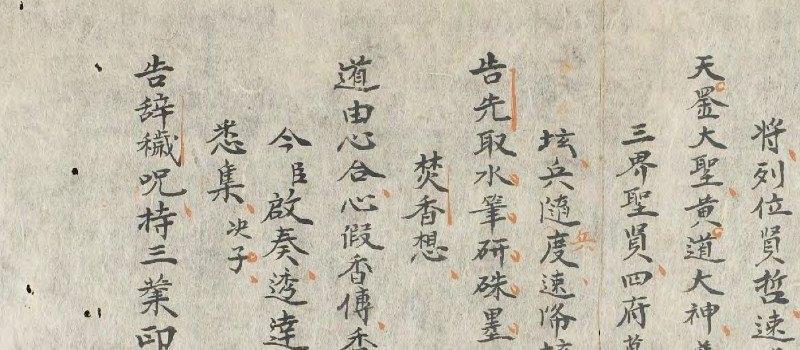 将列位賢哲速
天罡大聖黄道大神
三界聖賢四府
垓兵随度速降垓
兵
告先取水筆研硃墨
焚香想
道由心合心假香傳香
今臣啟奏透達
悉集决子
告辞穢呪持三業印